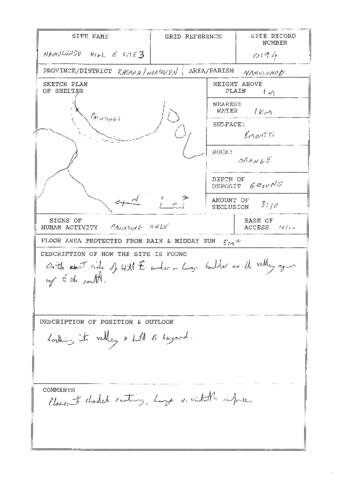 SITE NAME GRID REFERENCE SITE RECORD
NUMBER
HILL E SITE 3 0194
PROVINCE/DISTRICT AREA/PARISH
SKETCH PLAN
OF SHELTER
PAINTINGS
HEIGHT ABOVE
PLAIN 1m
NEAREST
WATER 1Km
SURFACE:
SMOOTH
ROCK:
ORANGE
DEPTH OF
DEPOSIT GROUND
AMOUNT OF
SECLUSION 3/10
SIGNS OF
HUMAN ACTIVITY PAINTING ONLY
EASE OF
ACCESS
FLOOR AREA PROTECTED FROM RAIN & MIDDAY SUN 5m
DESCRIPTION OF HOW THE SITE IS FOUND
On the side of Hill E under a large boulder as the valley opens
to the south.
DESCRIPTION OF POSITION & OUTLOOK
Looking into valley & hill B beyond.
COMMENTS
Pleasant shaded setting, large suitable surface.